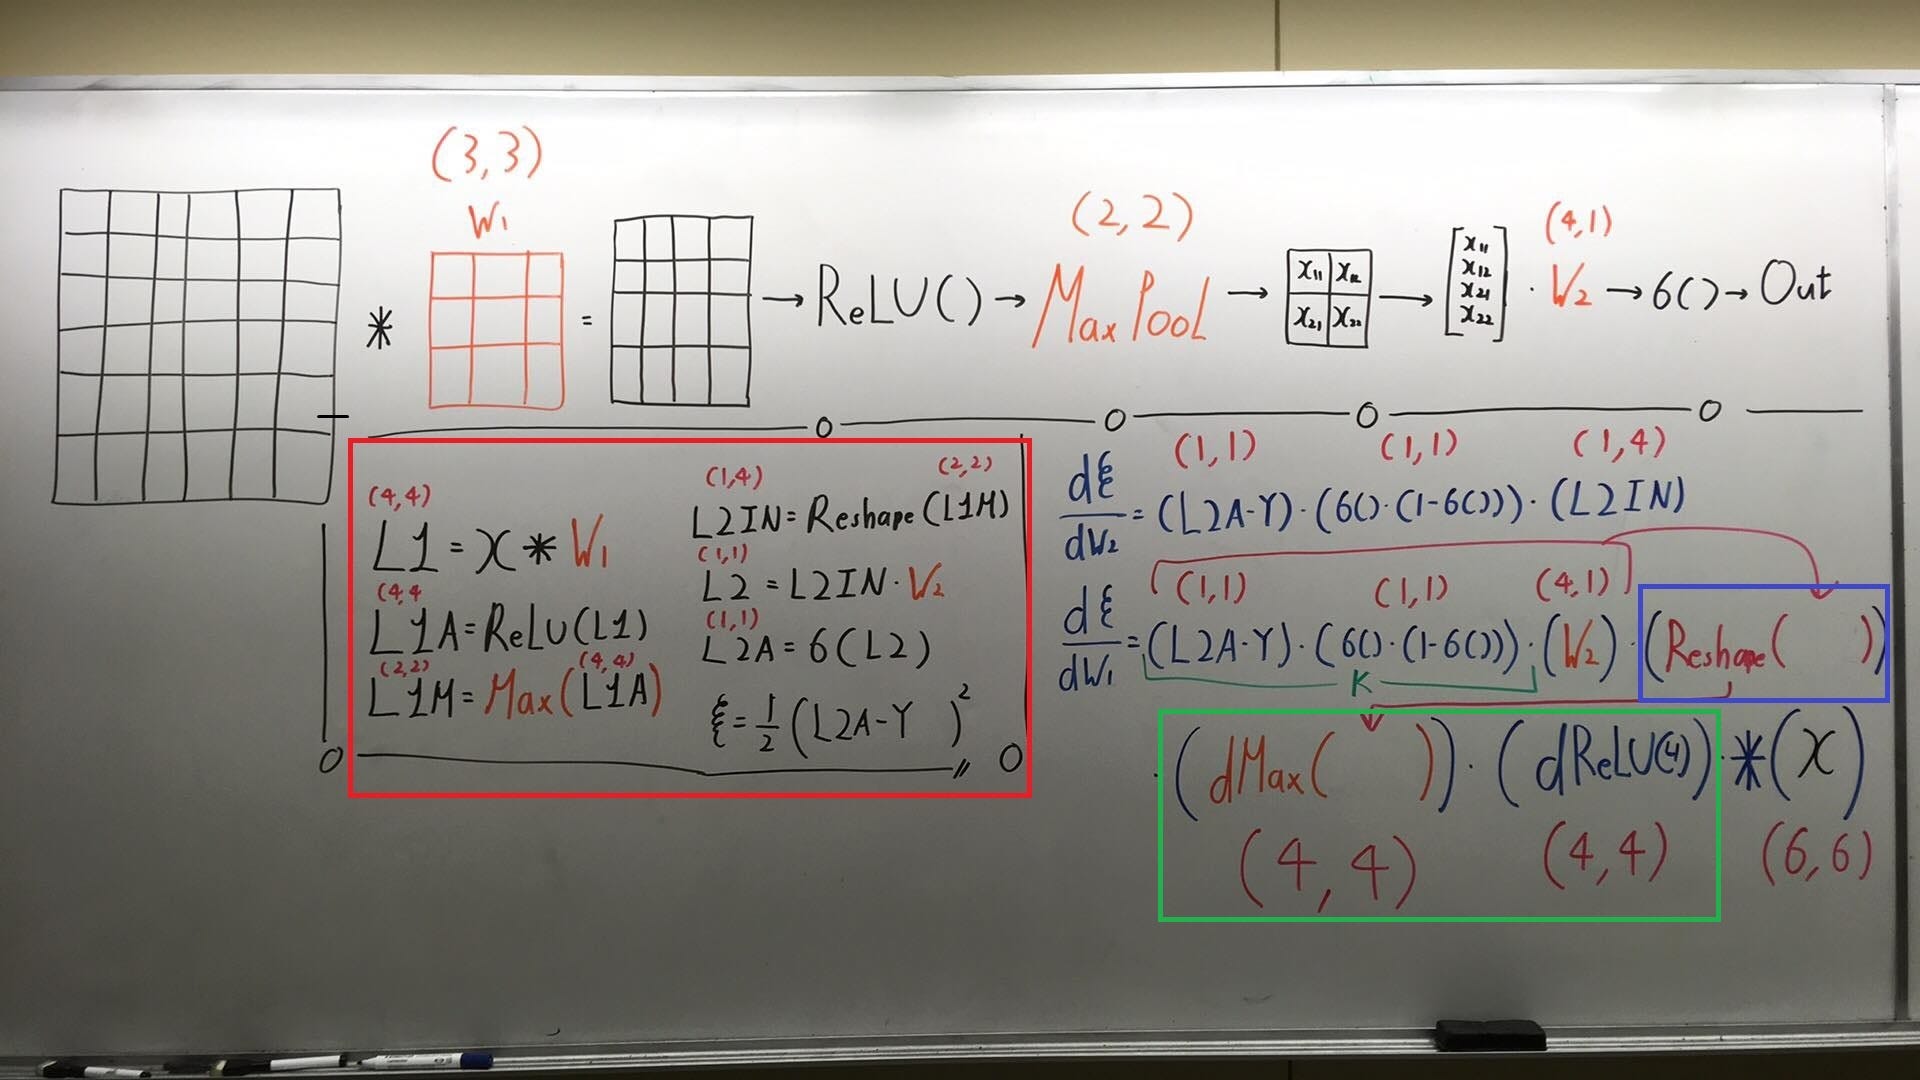 (3,3)
W1
* =
→ ReLU() →
(2,2)
Max Pool
→
x11 x12
x21 x22
→
x11
x12
x21
x22
(4,1)
· W2 → 6() → Out
(4,4)
L1 = X * W1
(4,4
L1A = ReLU(L1)
(2,2) (4,4)
L1M = Max(L1A)
(1,4) (2,2)
L2IN = Reshape(L1M)
(1,1)
L2 = L2IN · W2
(1,1)
L2A = 6(L2)
ξ = 1/2 (L2A-Y )²
(1,1) (1,1) (1,4)
dξ/dW2 = (L2A-Y) · (6()·(1-6())) · (L2IN)
(1,1) (1,1) (4,1)
dξ/dW1 = (L2A-Y) · (6()·(1-6())) · (W2) · (Reshape( ))
K
· (dMax( )) · (dReLU(4)) · * (X)
(4,4) (4,4) (6,6)